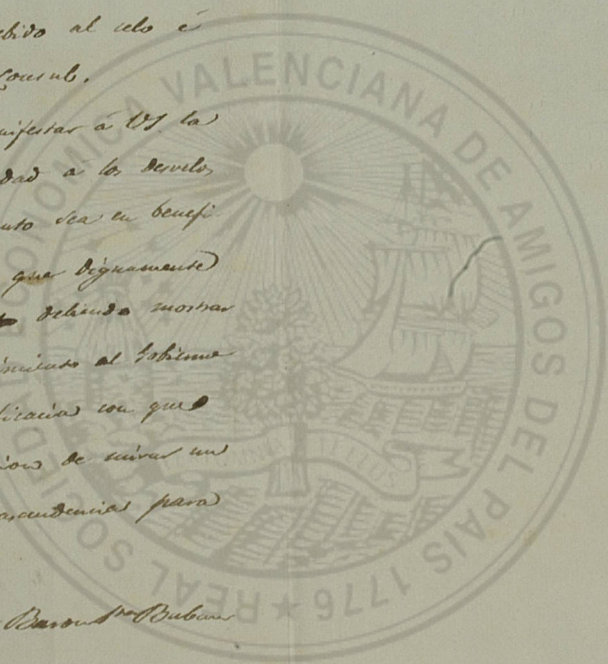 ebido al celo é
Consul.
nifestar á VS la
dad a los desvelos
nto sea en benefi
que dignamente
debiendo mostrar
imiento al Gobierno
ficacia con que
cion de mirar un
ascendencias para
Baron
REAL SOCIEDAD ECONOMICA VALENCIANA DE AMIGOS DEL PAIS 1776